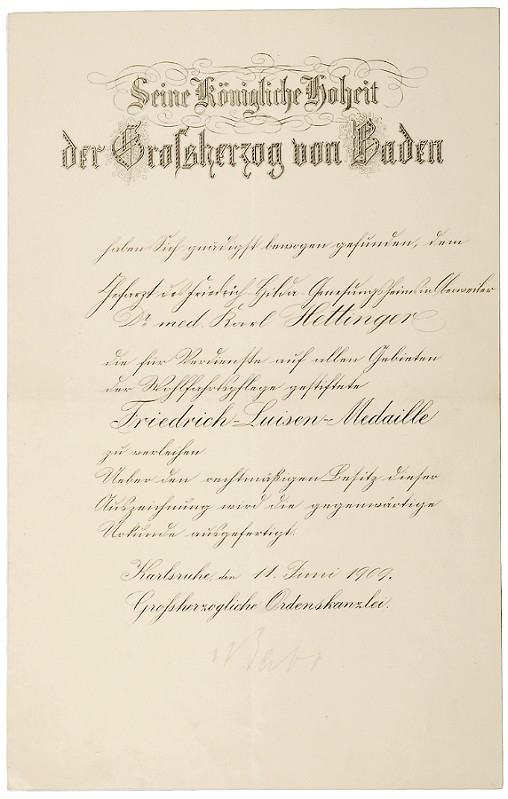 Seine Königliche Hoheit
der Großherzog von Baden
haben Sich gnädigst bewogen gefunden, dem
des Friedrich-Hilda-Genesungsheims in Oberweiler
Dr. med. Karl Hettinger
die für Verdienste auf allen Gebieten
der Wohlfahrtspflege gestiftete
Friedrich-Luisen-Medaille
zu verleihen.
Ueber den rechtmäßigen Besitz dieser
Auszeichnung wird die gegenwärtige
Urkunde ausgefertigt.
Karlsruhe, den 11. Juni 1909.
Großherzogliche Ordenskanzlei.